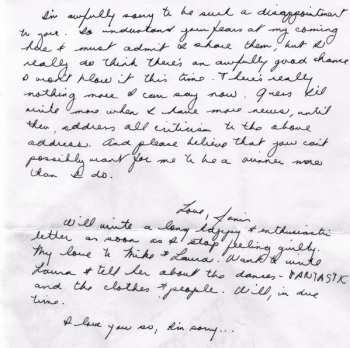 I'm awfully sorry to be such a disappointment
to you. So understand your fears at my coming
here & must admit I share them, but I
really do think there's an awfully good chance
I won't blow it this time. There's really
nothing more I can say now. Guess I'll
write more when I have more news, until
then, address all criticism to the above
address. And please believe that you can't
possibly want for me to be a winner more
than I do.
Love, Janis
Will write a long happy & enthusiastic
letter as soon as I stop feeling guilty.
My love to Mike & Laura. Want to write
Laura & tell her about the dances - FANTASTIC
and the clothes & people. Will, in due
time.
I love you so, I'm sorry...